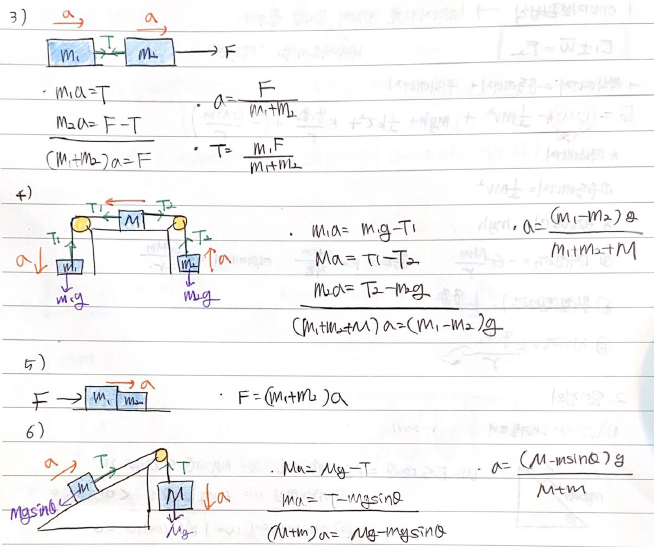 3)
a a
m₁ T m₂ F
· m₁a = T
m₂a = F - T
(m₁+m₂)a = F
· a = F/(m₁+m₂)
· T = m₁F/(m₁+m₂)
4)
T₁ M T₂
T₁ T₂
a m₁ m₂ a
m₁g m₂g
· m₁a = m₁g - T₁
Ma = T₁ - T₂
m₂a = T₂ - m₂g
(m₁+m₂+M)a = (m₁-m₂)g
· a = (m₁-m₂)g/(m₁+m₂+M)
5)
a
F m₁ m₂
· F = (m₁+m₂)a
6)
a T T
m M a
Mgsinθ Mg
· Ma = Mg - T
ma = T - mgsinθ
(M+m)a = Mg - mgsinθ
· a = (M-msinθ)g/(M+m)